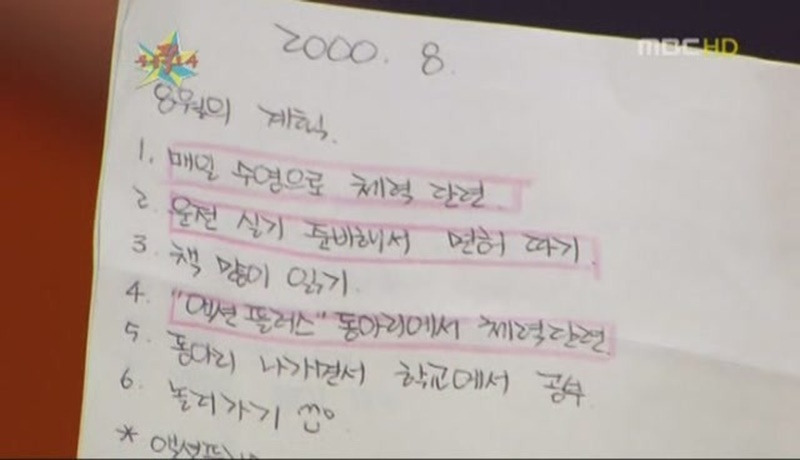 MBC HD
2000. 8.
8월의 계획.
1. 매일 수영으로 체력 단련.
2. 운전 실기 준비해서 면허 따기.
3. 책 많이 읽기.
4. "액션플러스" 동아리에서 체력단련.
5. 동아리 나가면서 학교에서 공부.
6. 놀러가기